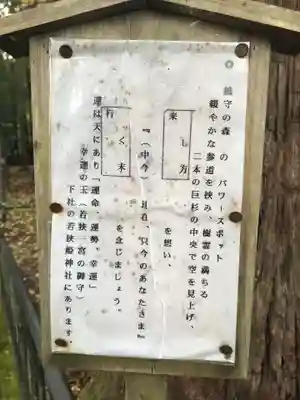 ◎鎮守の森 の パワースポット
緩やかな参道を挟み、樹霊の満ちる
二本の巨杉の中央で空を見上げ、
来し方
を想い、
『（中今）現在、只今のあなたさま』
行く末
を念じましょう。
運は天にあり「運命、運勢、幸運」
幸運の玉(若狭一宮の御守)
下社の若狭姫神社にあります。